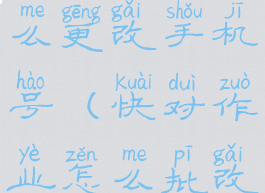 me gēng gǎi shǒu jī
么更改手机
hào kuài duì zuò
号（快对作
yè zěn me pī gǎi
业怎么批改